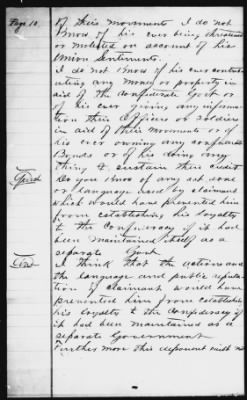 Page 10.
of their movements I do not
know of his ever being threatened
or molested on account of his
Union Sentiments.
I do not know of his ever contrib
uting any money or property in
aid of the confederate Govt or
of his ever giving any informa
tion their officers or soldiers
in aid of their movements or of
his ever owning any confederate
Bonds or of his doing any
thing to sustain their credit
Quest
Do you know of any act done
or language used by claimant
which would have prevented him
from establishing his loyalty
to the Confederacy if it had
been maintained itself as a
separate Govt
Ans
I think that the actions and
the language and public reputa
tion of claimant would have
prevented him from establishing
his loyalty to the confederacy if
it had been maintained as a
separate Government
Further more this deponent saith not